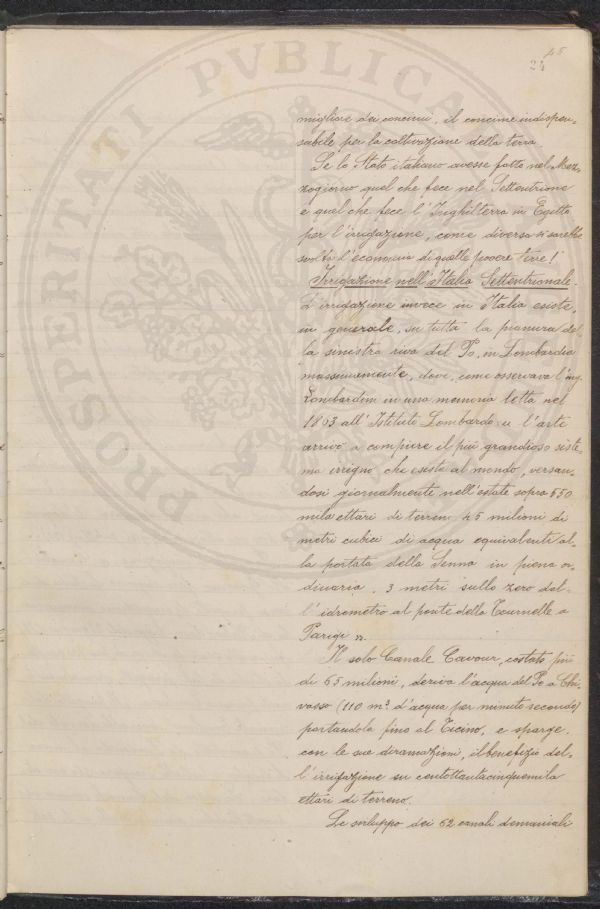 PROSPERITATI PVBLICAE
24
migliore dei concimi, il concime indispen-
sabile per la coltivazione della terra.
Se lo Stato italiano avesse fatto nel Mez-
zogiorno quel che fece nel Settentrione
e quel che fece l'Inghilterra in Egitto
per l'irrigazione, come diversa si sarebbe
svolta l'economia di quelle povere terre!
Irrigazione nell'Italia Settentrionale.
L'irrigazione invece in Italia esiste,
in generale, su tutta la pianura del-
la sinistra riva del Po, in Lombardia
massimamente, dove, come osservava l'ing.
Lombardini in una memoria letta nel
1863 all'Istituto Lombardo " l'arte
arrivò a compiere il più grandioso siste-
ma irriguo, che esista al mondo, versan-
dosi giornalmente nell'estate sopra 550
mila ettari di terreni 45 milioni di
metri cubici di acqua equivalenti al-
la portata della Senna in piena or-
dinaria, 3 metri sullo zero del-
l'idrometro al ponte della Tournelle a
Parigi ".
Il solo Canale Cavour, costato più
di 65 milioni, deriva l'acqua del Po a Chi-
vasso (110 m³ d'acqua per minuto secondo)
portandola fino al Ticino, e sparge,
con le sue diramazioni, il benefizio del-
l'irrigazione su centottantacinquemila
ettari di terreno.
Lo sviluppo dei 62 canali demaniali